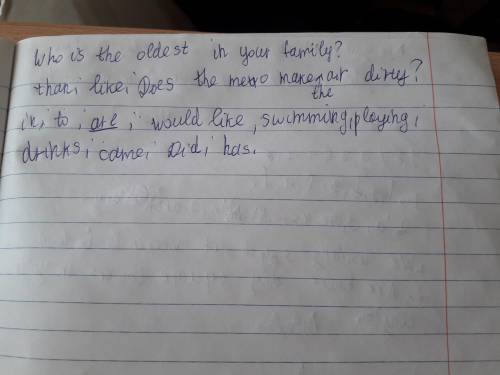 Who is the oldest in your family?
than, like, Does the metro make the air dirty?
in, to, are, would like, swimming, playing,
drinks, came, Did, has.